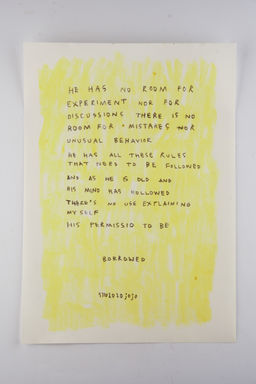 HE HAS NO ROOM FOR
EXPERIMENT NOR FOR
DISCUSSIONS THERE IS NO
ROOM FOR MISTAKES NOR
UNUSUAL BEHAVIOR
HE HAS ALL THESE RULES
THAT NEED TO BE FOLLOWED
AND AS HE IS OLD AND
HIS MIND HAS HOLLOWED
THERE'S NO USE EXPLAINING
MY SELF
HIS PERMISSIO TO BE
BORROWED